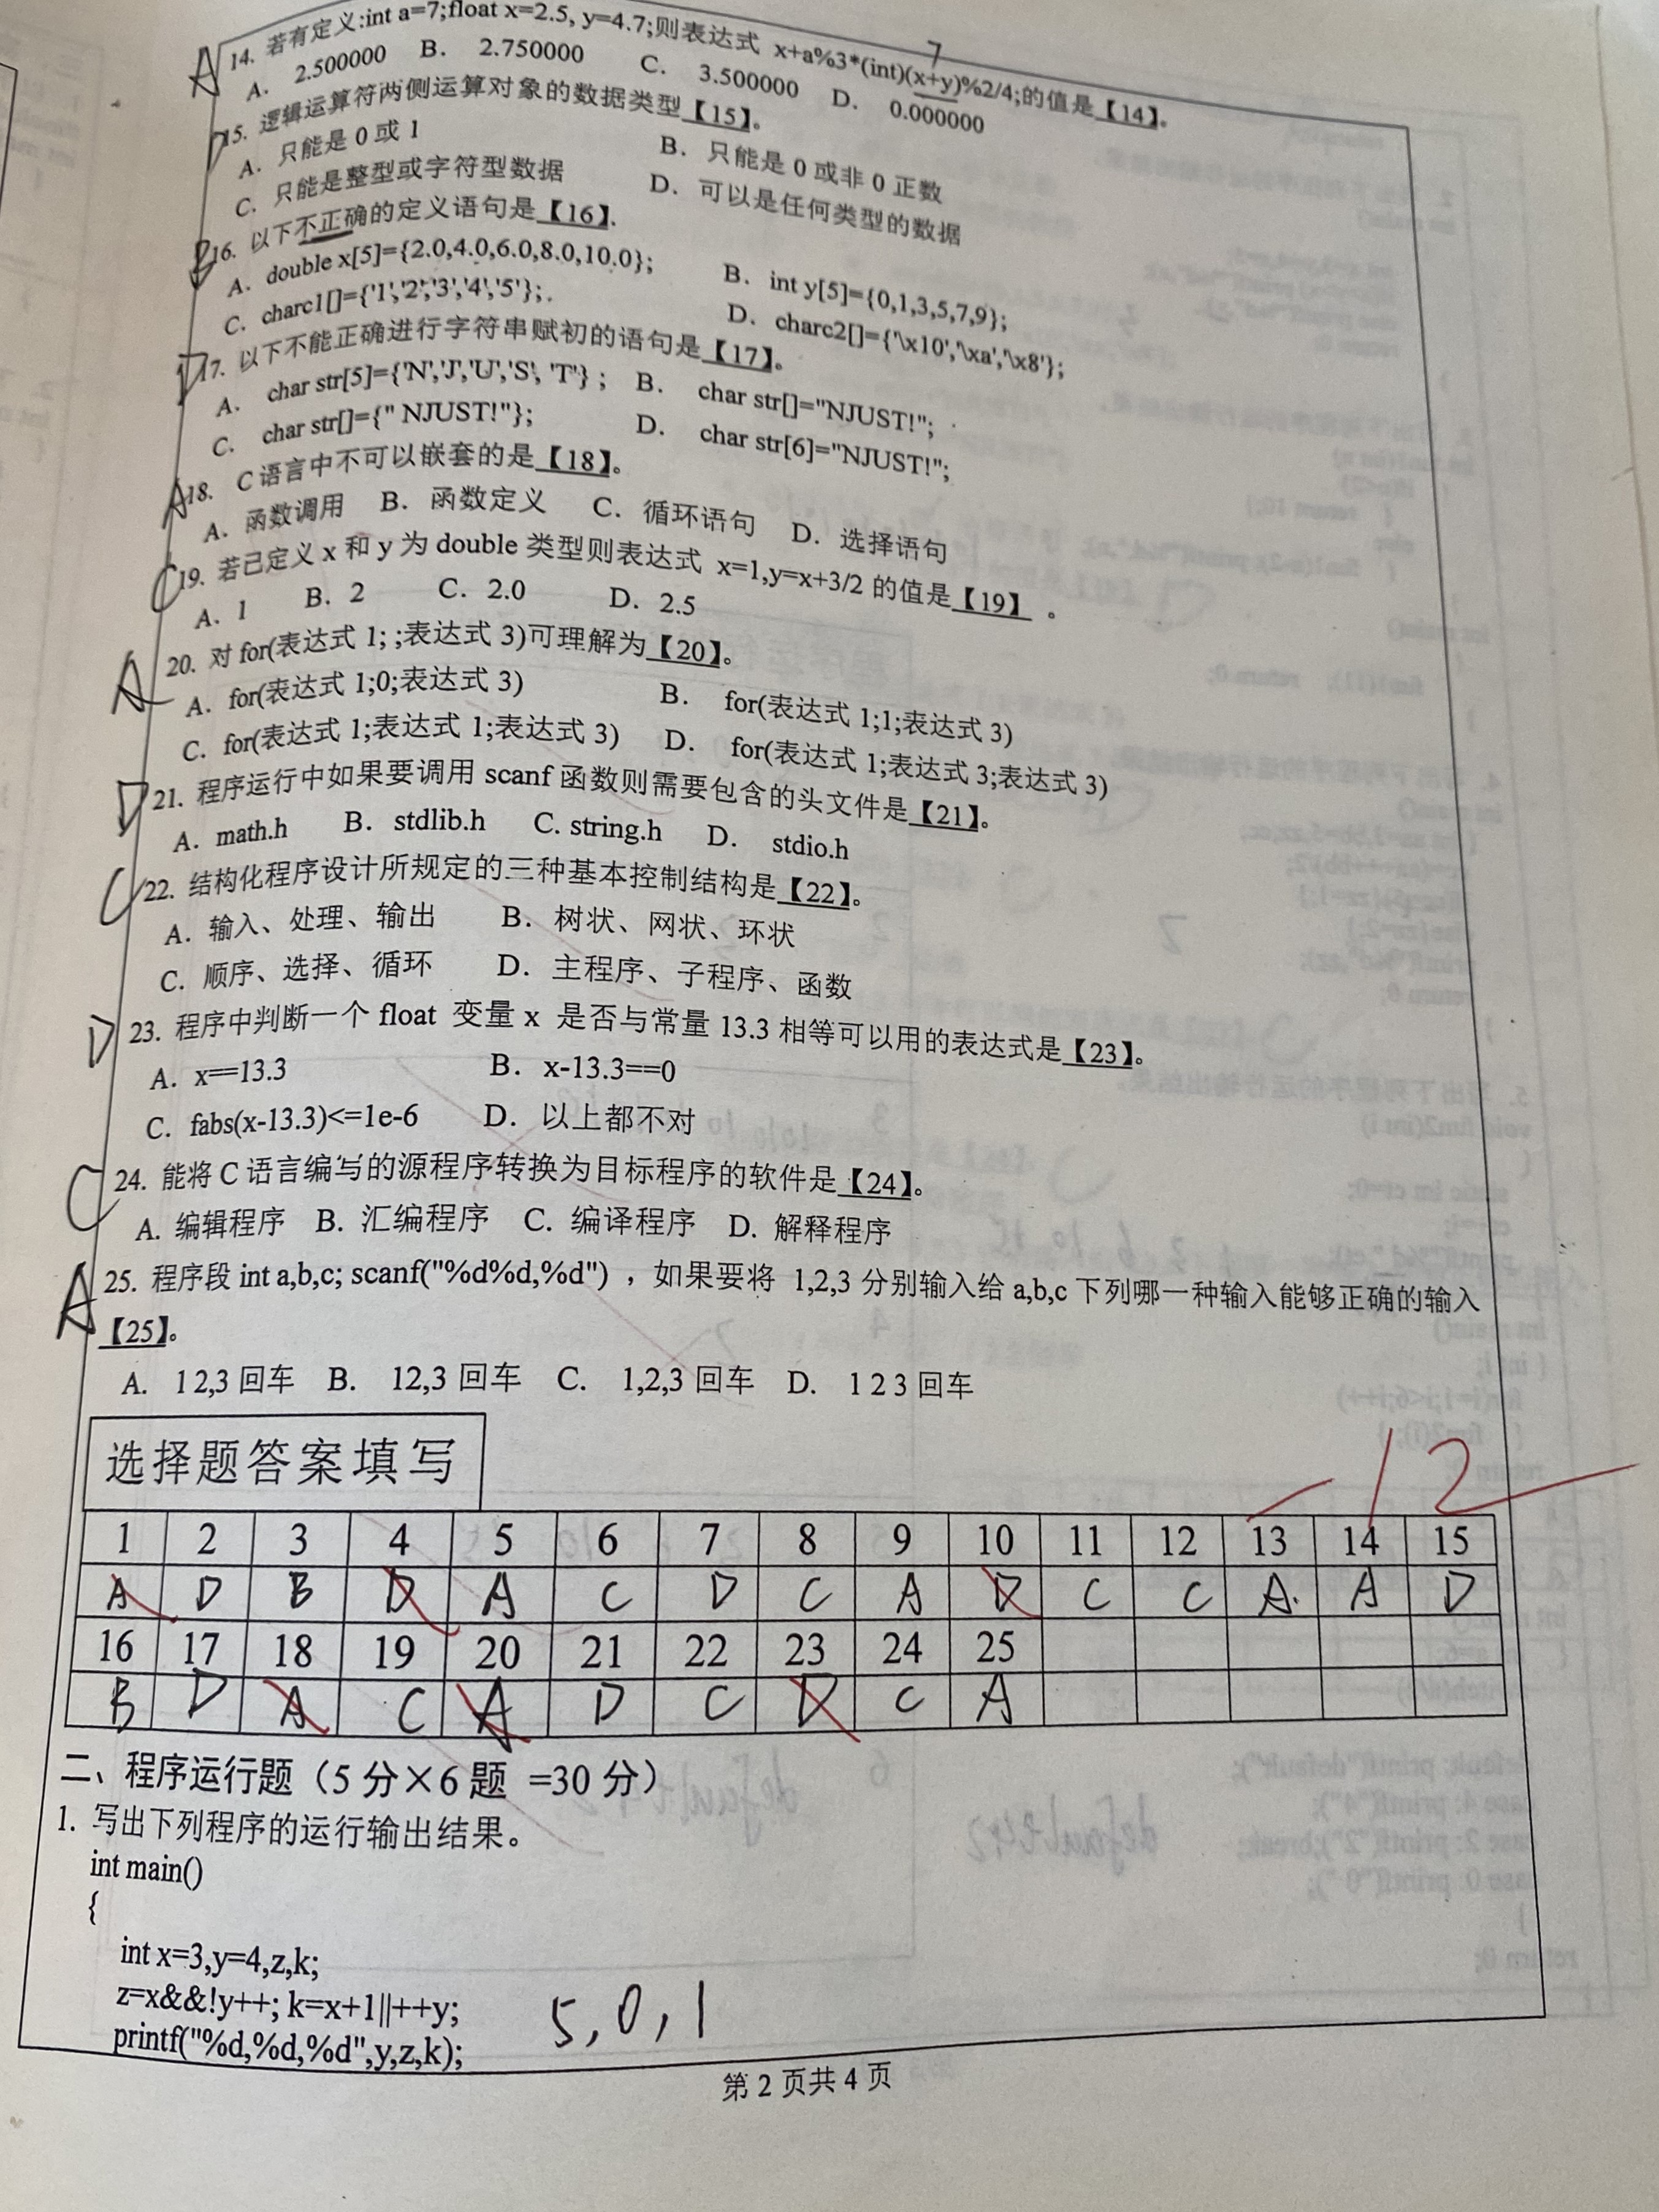 A 14. 若有定义:int a=7;float x=2.5, y=4.7;则表达式 x+a%3*(int)(x+y)%2/4;的值是【14】。
7
A. 2.500000 B. 2.750000 C. 3.500000 D. 0.000000
D 15. 逻辑运算符两侧运算对象的数据类型【15】。
A. 只能是 0 或 1 B. 只能是 0 或非 0 正数
C. 只能是整型或字符型数据 D. 可以是任何类型的数据
B 16. 以下不正确的定义语句是【16】.
A. double x[5]={2.0,4.0,6.0,8.0,10.0}; B. int y[5]={0,1,3,5,7,9};
C. charc1[]={'1','2','3','4','5'}; D. charc2[]={'\x10','\xa','\x8'};
D 17. 以下不能正确进行字符串赋初的语句是【17】。
A. char str[5]={'N','J','U','S', 'T'} ; B. char str[]="NJUST!";
C. char str[]={" NJUST!"}; D. char str[6]="NJUST!";
A 18. C 语言中不可以嵌套的是【18】。
A. 函数调用 B. 函数定义 C. 循环语句 D. 选择语句
C 19. 若已定义 x 和 y 为 double 类型则表达式 x=1,y=x+3/2 的值是【19】 。
A. 1 B. 2 C. 2.0 D. 2.5
A 20. 对 for(表达式 1; ;表达式 3)可理解为【20】。
A. for(表达式 1;0;表达式 3) B. for(表达式 1;1;表达式 3)
C. for(表达式 1;表达式 1;表达式 3) D. for(表达式 1;表达式 3;表达式 3)
D 21. 程序运行中如果要调用 scanf 函数则需要包含的头文件是【21】。
A. math.h B. stdlib.h C. string.h D. stdio.h
C 22. 结构化程序设计所规定的三种基本控制结构是【22】。
A. 输入、处理、输出 B. 树状、网状、环状
C. 顺序、选择、循环 D. 主程序、子程序、函数
D 23. 程序中判断一个 float 变量 x 是否与常量 13.3 相等可以用的表达式是【23】。
A. x==13.3 B. x-13.3==0
C. fabs(x-13.3)<=1e-6 D. 以上都不对
C 24. 能将 C 语言编写的源程序转换为目标程序的软件是【24】。
A. 编辑程序 B. 汇编程序 C. 编译程序 D. 解释程序
A 25. 程序段 int a,b,c; scanf("%d%d,%d") ，如果要将 1,2,3 分别输入给 a,b,c 下列哪一种输入能够正确的输入
【25】。
A. 1 2,3 回车 B. 12,3 回车 C. 1,2,3 回车 D. 1 2 3 回车
选择题答案填写
-12
1 2 3 4 5 6 7 8 9 10 11 12 13 14 15
A D B D A C D C A D C C A. A D
16 17 18 19 20 21 22 23 24 25
B D A C A D C D C A
二、程序运行题（5 分×6 题 =30 分）
1. 写出下列程序的运行输出结果。
int main()
{
int x=3,y=4,z,k;
z=x&&!y++; k=x+1||++y;
printf("%d,%d,%d",y,z,k);
5,0,1
第 2 页共 4 页